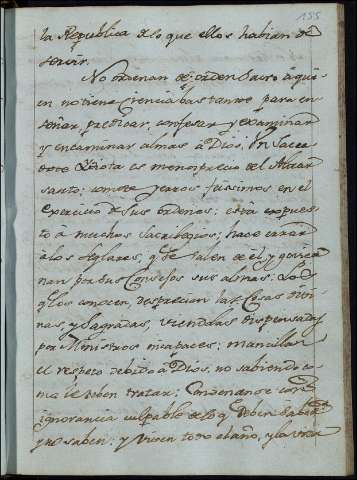 155
la Republica de lo que ellos habian de
servir.
No ordenan de orden Sacro à qui-
en no tiene Ciencia bastante para en-
señar, predicar, confesar y examinar
y encaminar almas à Dios. Un Sacer-
dote Idiota es menosprecio del Altar
santo: comete yerros feissimos en el
exercicio de sus ordenes: està expues-
to à muchos Sacrilegios; hace errar
à los seglares, q. se valen de él, y govier-
nan por sus Consejos sus almas: Los
q. los conocen, desprecian las Cosas divi-
nas, y Sagradas, viendolas dispensadas
por Ministros incapaces; mancillan
el respeto debido à Dios, no sabiendo co-
mo le deben tratar; Condenanse con
ignorancia culpable de lo q. deben saber
y no saben; y viven todo el año, y la vida